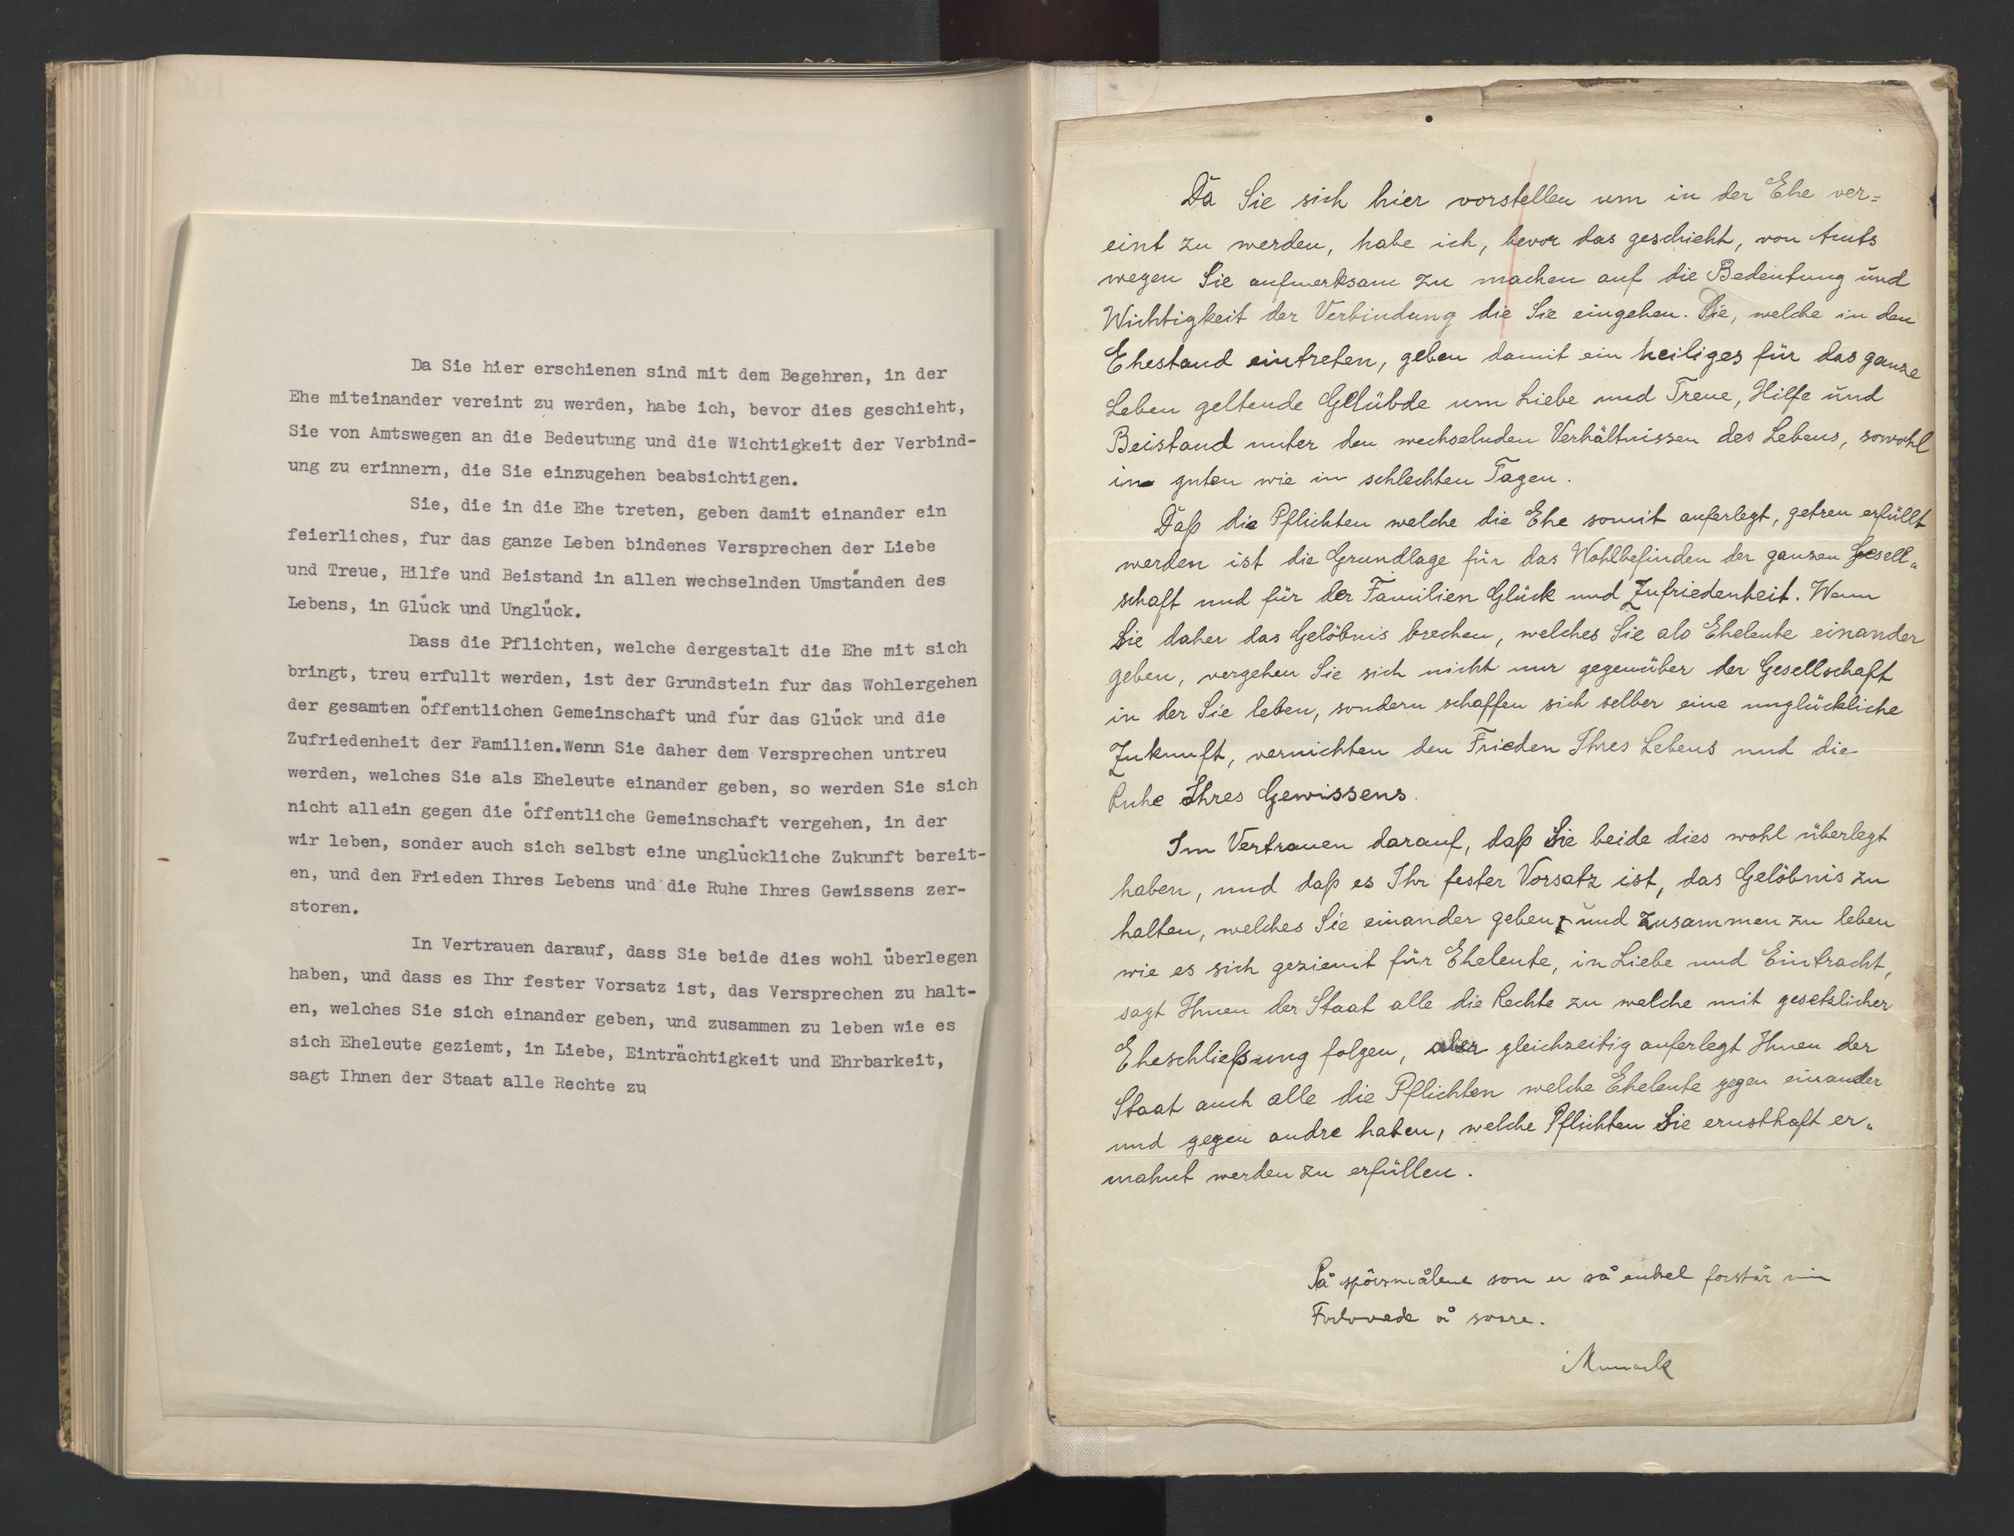 Da Sie hier erschienen sind mit dem Begehren, in der
Ehe miteinander vereint zu werden, habe ich, bevor dies geschieht,
Sie von Amtswegen an die Bedeutung und die Wichtigkeit der Verbind-
ung zu erinnern, die Sie einzugehen beabsichtigen.
Sie, die in die Ehe treten, geben damit einander ein
feierliches, fur das ganze Leben bindenes Versprechen der Liebe
und Treue, Hilfe und Beistand in allen wechselnden Umständen des
Lebens, in Glück und Unglück.
Dass die Pflichten, welche dergestalt die Ehe mit sich
bringt, treu erfullt werden, ist der Grundstein fur das Wohlergehen
der gesamten öffentlichen Gemeinschaft und für das Glück und die
Zufriedenheit der Familien.Wenn Sie daher dem Versprechen untreu
werden, welches Sie als Eheleute einander geben, so werden Sie sich
nicht allein gegen die öffentliche Gemeinschaft vergehen, in der
wir leben, sonder auch sich selbst eine unglückliche Zukunft bereit-
en, und den Frieden Ihres Lebens und die Ruhe Ihres Gewissens zer-
storen.
In Vertrauen darauf, dass Sie beide dies wohl überlegen
haben, und dass es Ihr fester Vorsatz ist, das Versprechen zu halt-
en, welches Sie sich einander geben, und zusammen zu leben wie es
sich Eheleute geziemt, in Liebe, Einträchtigkeit und Ehrbarkeit,
sagt Ihnen der Staat alle Rechte zu
Da Sie sich hier vorstellen um in der Ehe ver=
eint zu werden, habe ich, bevor das geschieht, von Amts
wegen Sie aufmerksam zu machen auf die Bedeutung und
Wichtigkeit der Verbindung die Sie eingehen. Sie, welche in den
Ehestand eintreten, geben damit ein heiliges für das ganze
Leben geltende Gelübde um Liebe und Treue, Hilfe und
Beistand unter den wechselnden Verhältnissen des Lebens, sowohl
in guten wie in schlechten Tagen.
Daß die Pflichten welche die Ehe somit auferlegt, getreu erfüllt
werden ist die Grundlage für das Wohlbefinden der ganzen Gesell„
schaft und für der Familien Glück und Zufriedenheit. Wenn
Sie daher das Gelöbnis brechen, welches Sie als Eheleute einander
geben, vergehen Sie sich nicht nur gegenüber der Gesellschaft
in der Sie leben, sondern schaffen sich selber eine unglückliche
Zukunft, vernichten den Frieden Ihres Lebens und die
Ruhe Ihres Gewissens.
Im Vertrauen darauf, daß Sie beide dies wohl überlegt
haben, und daß es Ihr fester Vorsatz ist, das Gelöbnis zu
halten, welches Sie einander geben, und zusammen zu leben
wie es sich geziemt für Eheleute, in Liebe und Eintracht,
sagt Ihnen der Staat alle die Rechte zu welche mit gesetzlicher
Eheschließung folgen, aber gleichzeitig auferlegt Ihnen der
Staat auch alle die Pflichten welche Eheleute gegen einander
und gegen andre haben, welche Pflichten Sie ernsthaft er„
mahnt werden zu erfüllen.
På spörsmålene som er så enkel forstår min
Forlovede å svare.